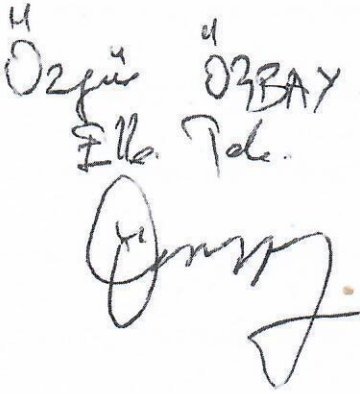 Özgür ÖZBAY
Elk. Tek.